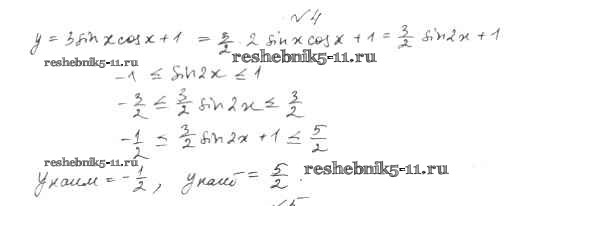 №4
y = 3sinxcosx+1 = 3/2 · 2 sinxcosx + 1 = 3/2 sin2x + 1
reshebnik5-11.ru reshebnik5-11.ru
-1 ≤ sin2x ≤ 1
-3/2 ≤ 3/2 sin2x ≤ 3/2
-1/2 ≤ 3/2 sin2x + 1 ≤ 5/2
reshebnik5-11.ru reshebnik5-11.ru
yнаим = -1/2, yнаиб = 5/2.